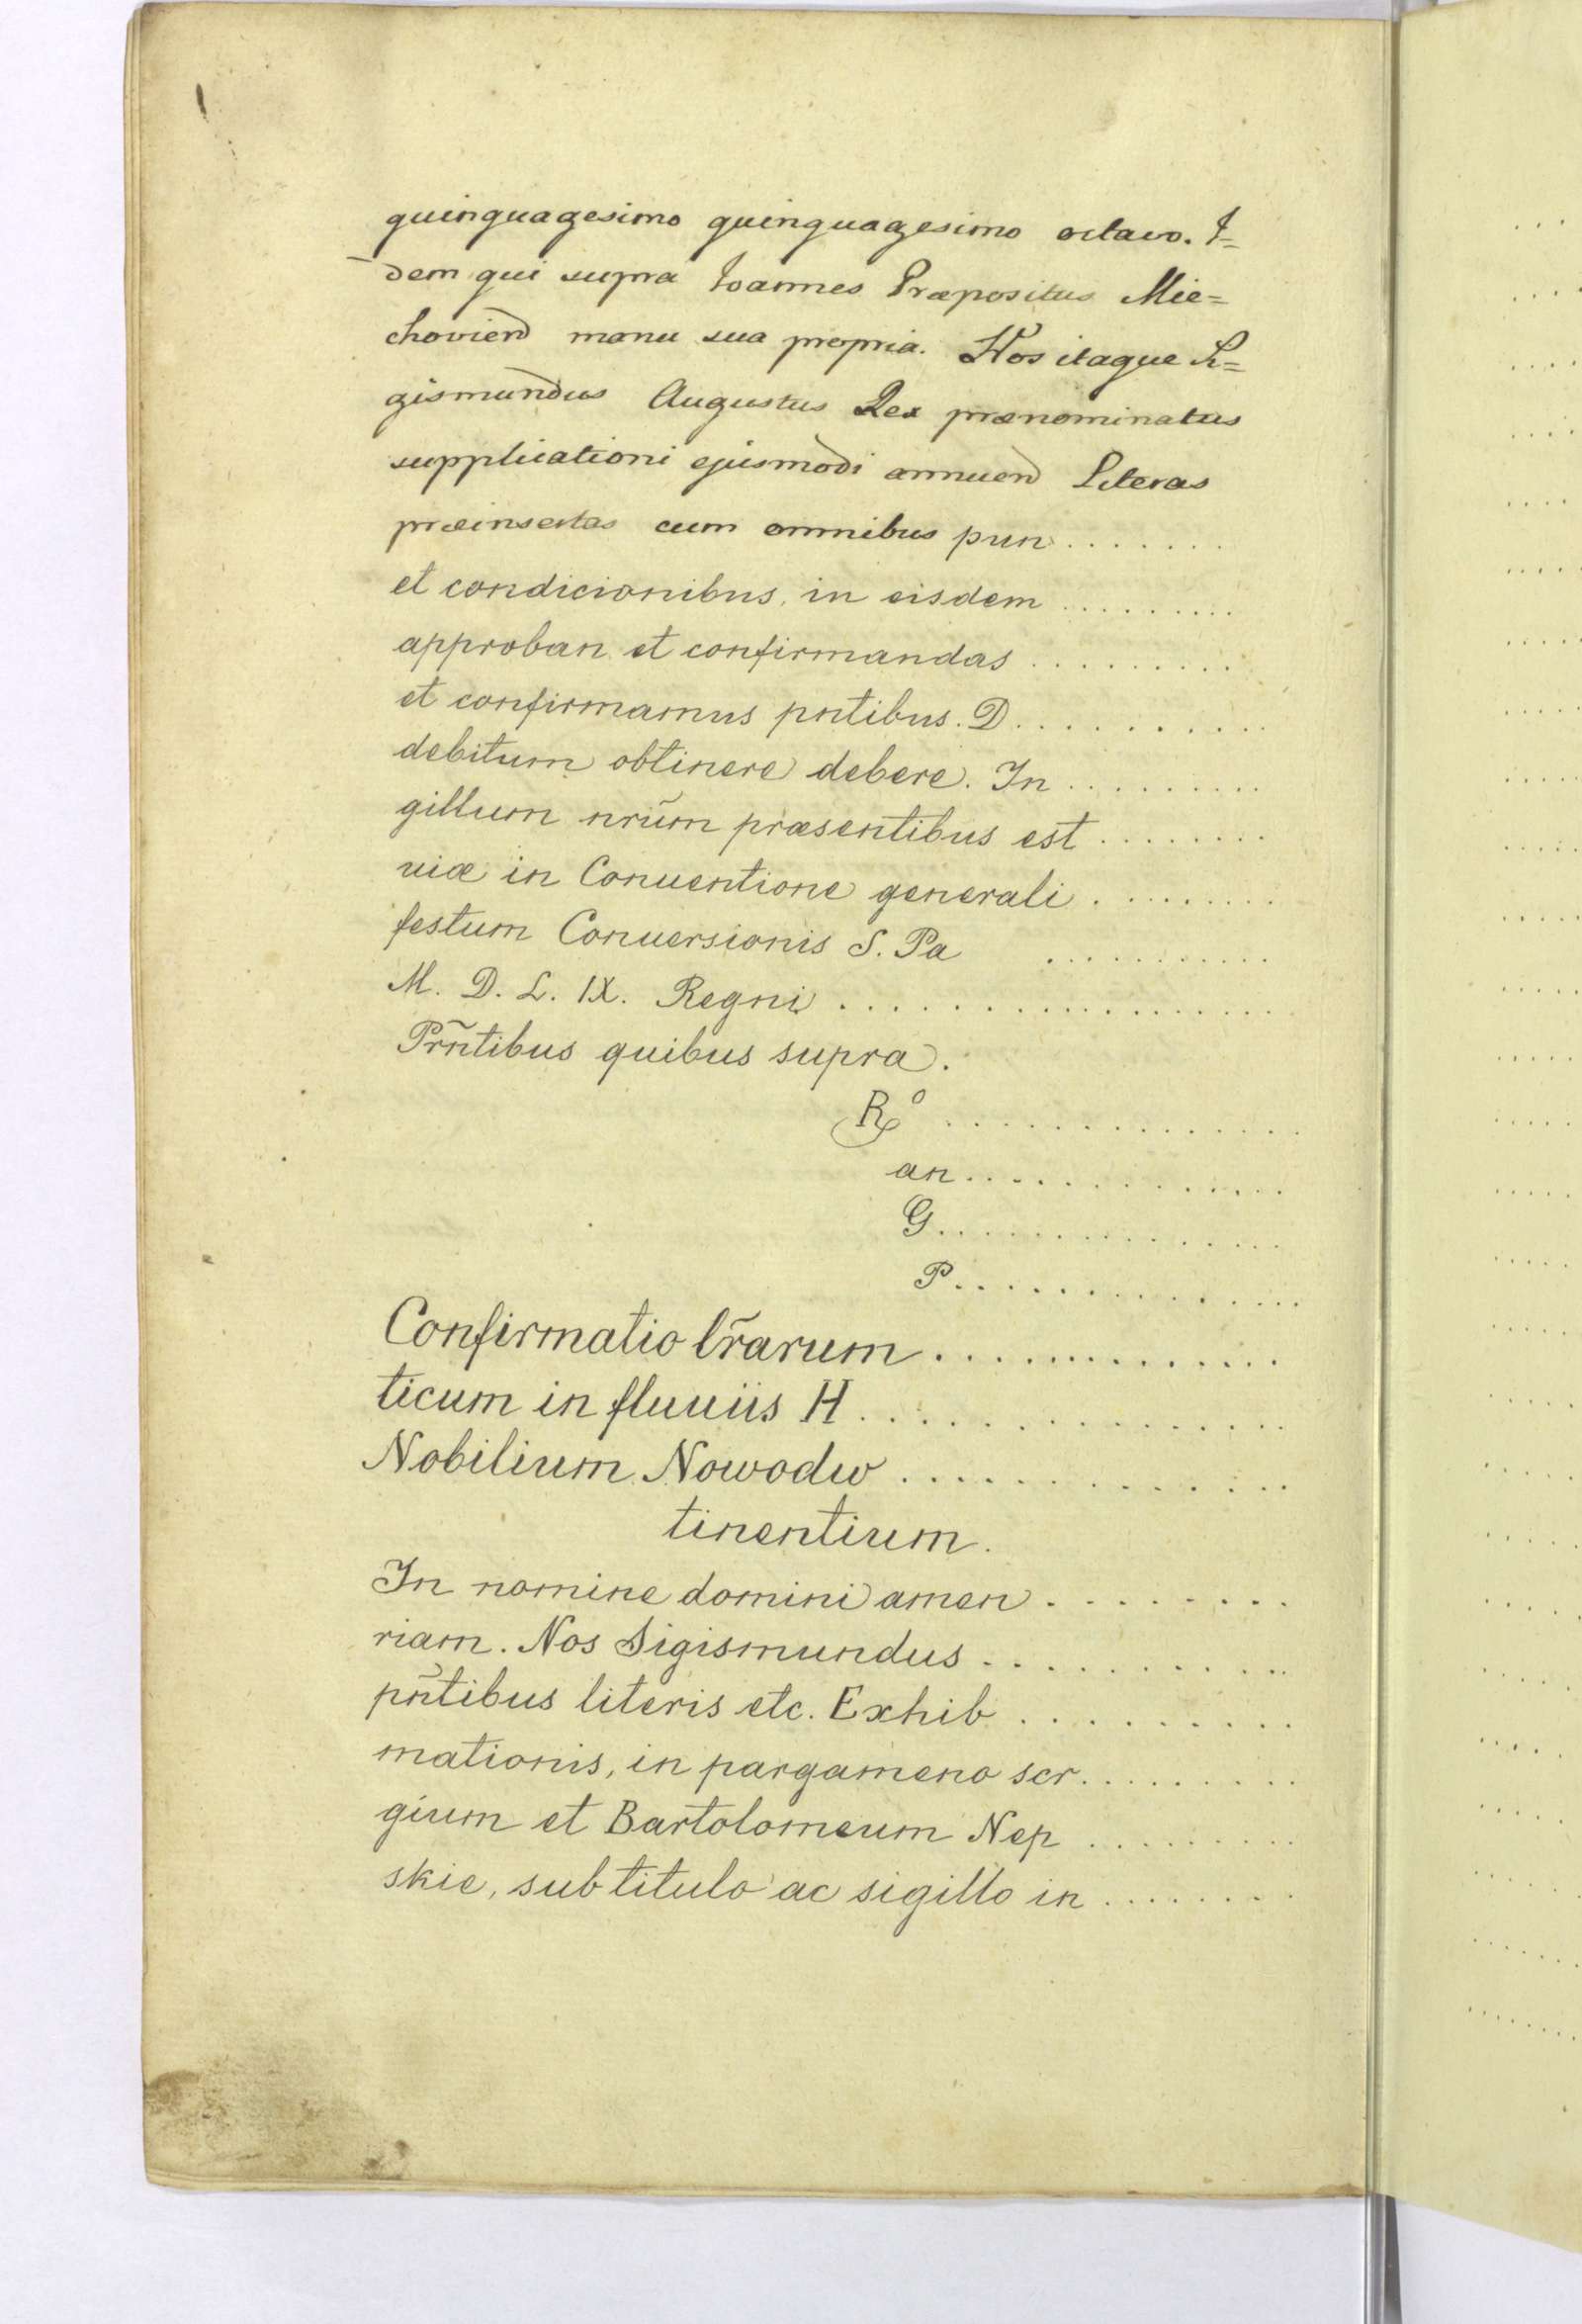 quinquagesimo quinquagesimo octavo. I=
dem qui supra Ioannes Præpositus Mie=
chovien manu sua propria. Nos itaque Si=
gismundus Augustus Rex prænominatus
supplicationi ejusmodi annuen Literas
præinsertas cum omnibus pun.......
et condicionibus, in eisdem .........
approban et confirmandas .........
et confirmamus pntibus. D...........
debitum obtinere debere. In .........
gillum nrũm præsentibus est ........
uiæ in Conuentione generali .........
festum Conuersionis S. Pa ...........
M. D. L. IX. Regni ..................
Pr̃ntibus quibus supra.
Rº ..............
an..............
G...............
P...............
Confirmatio lr̃arum ..............
ticum in fluuiis H ...............
Nobilium Nowodw ..............
tinentium.
In nomine domini amen .........
riam. Nos Sigismundus ...........
pñtibus literis etc. Exhib ..........
mationis, in pargameno scr.........
gium et Bartolomeum Nep .........
skie, sub titulo ac sigillo in ........